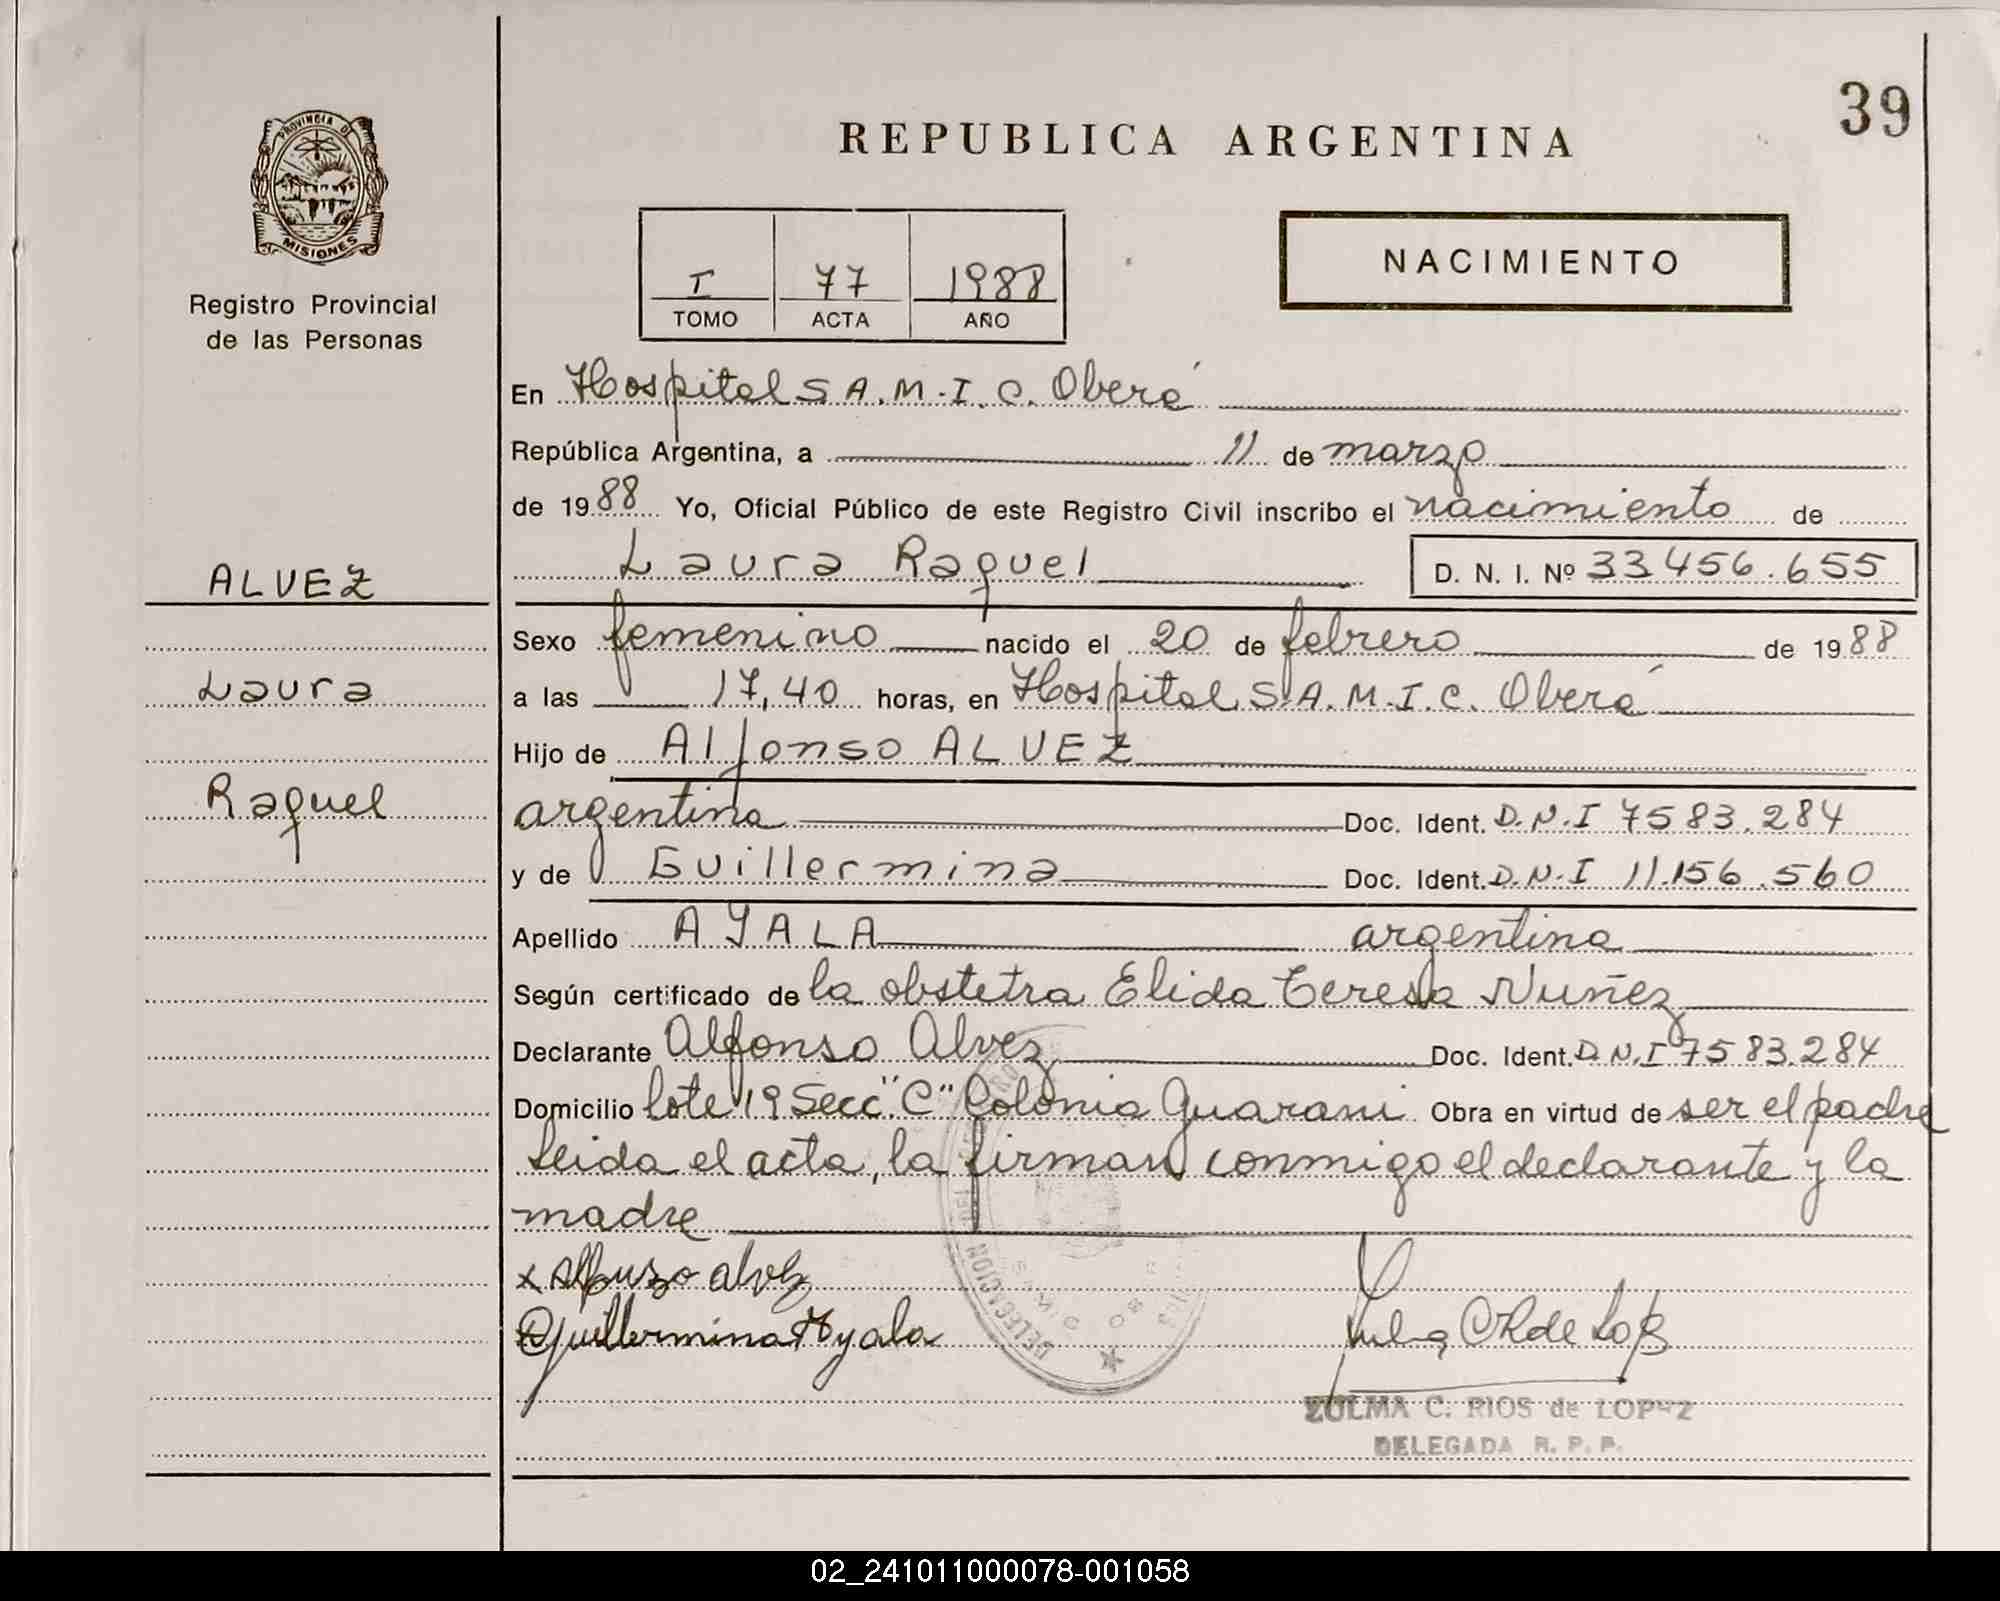 39
PROVINCIA DE
MISIONES
Registro Provincial
de las Personas
REPUBLICA ARGENTINA
I 77 1988
TOMO ACTA AÑO
NACIMIENTO
En Hospital S A.M.I.C. Oberá
República Argentina, a 11 de marzo
de 1988 Yo, Oficial Público de este Registro Civil inscribo el nacimiento de
Laura Raquel D. N. I. Nº 33456.655
ALVEZ
Laura
Raquel
Sexo femenino nacido el 20 de febrero de 1988
a las 17,40 horas, en Hospital S.A.M.I.C. Oberá
Hijo de Alfonso ALVEZ
argentina Doc. Ident. D.N.I 7583.284
y de Guillermina Doc. Ident. D.N.I 11.156.560
Apellido AYALA argentina
Según certificado de la obstetra Elida Teresa Nuñez
Declarante Alfonso Alvez Doc. Ident. D.N.I 7583.284
Domicilio lote 19 Secc "C" Colonia Guarani Obra en virtud de ser el padre
Leida el acta, la firman conmigo el declarante y la
madre
x Alfonzo alvez
Guillermina Ayala
DELEGACION
ZULMA C. RIOS de LOPEZ
DELEGADA R. P. P.
02_241011000078-001058